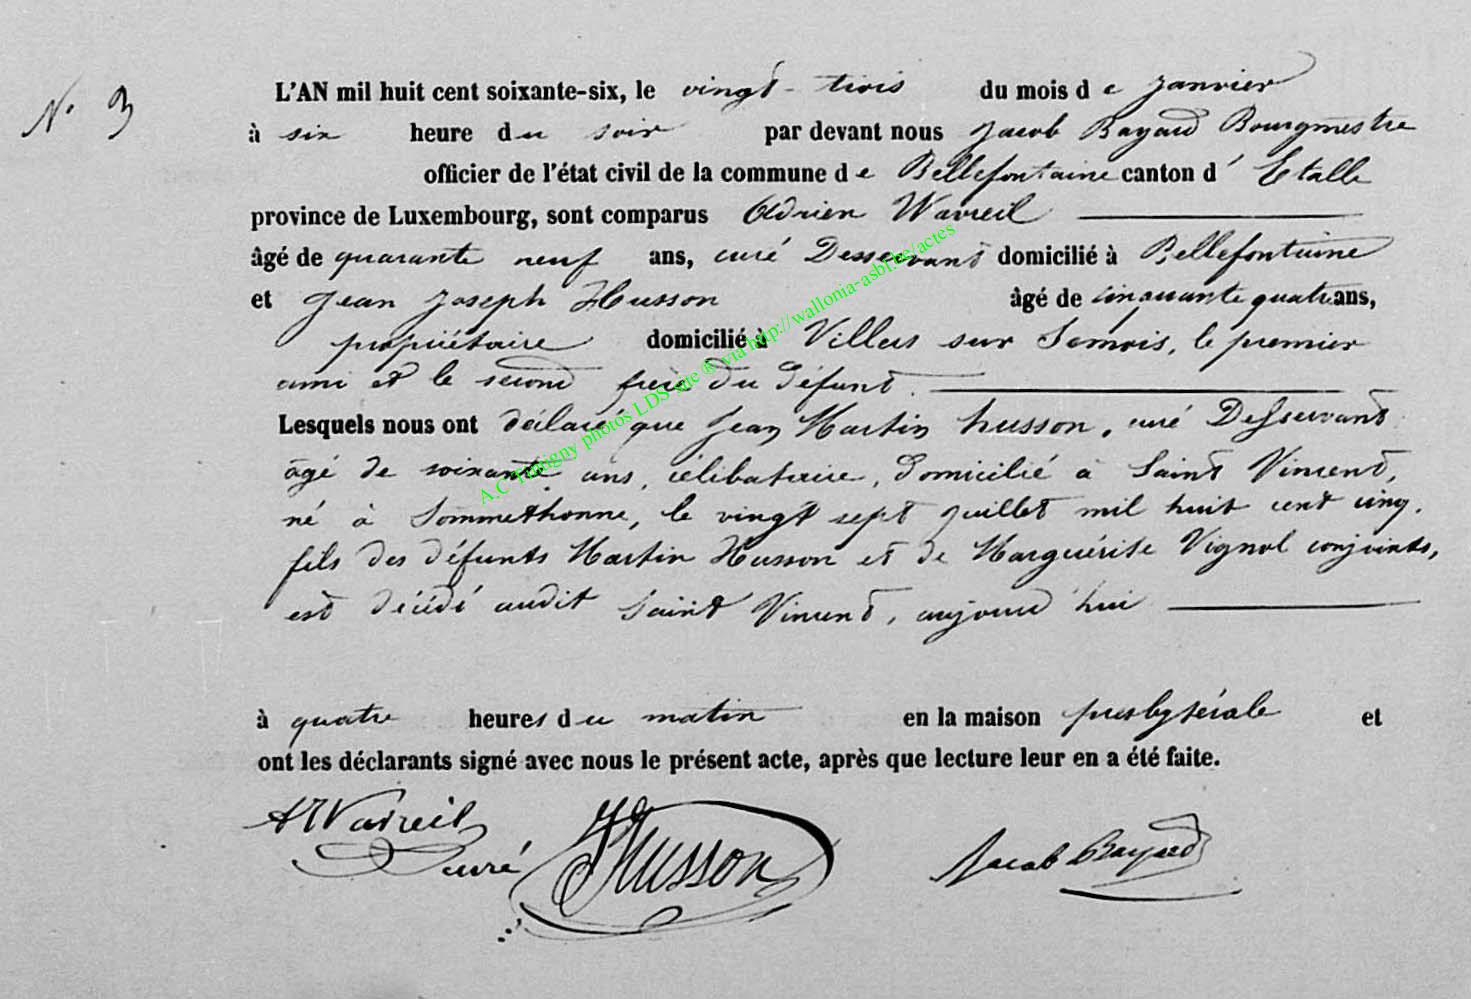 N° 3
L'AN mil huit cent soixante-six, le vingt-trois du mois de Janvier
à six heure du soir par devant nous Jacob Bayard Bourgmestre
officier de l'état civil de la commune de Bellefontaine canton d'Etalle
province de Luxembourg, sont comparus Adrien Wavreil
âgé de quarante neuf ans, curé Desservant domicilié à Bellefontaine
et Jean Joseph Husson âgé de cinquante quatre ans,
propriétaire domicilié à Villers sur Semois, le premier
ami et le second frère du défunt.
Lesquels nous ont déclaré que Jean Martin husson, curé Desservant
âgé de soixante ans, célibataire, domicilié à Saint Vincent,
né à Sommethonne, le vingt sept juillet mil huit cent cinq.
fils des défunts Martin Husson et de Marguérite Vignol conjoints,
est décédé audit Saint Vincent, aujourd'hui
à quatre heures du matin en la maison presbytérale et
ont les déclarants signé avec nous le présent acte, après que lecture leur en a été faite.
A Wavreil
curé
JJHusson
Jacob Bayard
A.C Tintigny photos LDS site ® via http://wallonia-asbl.be/actes